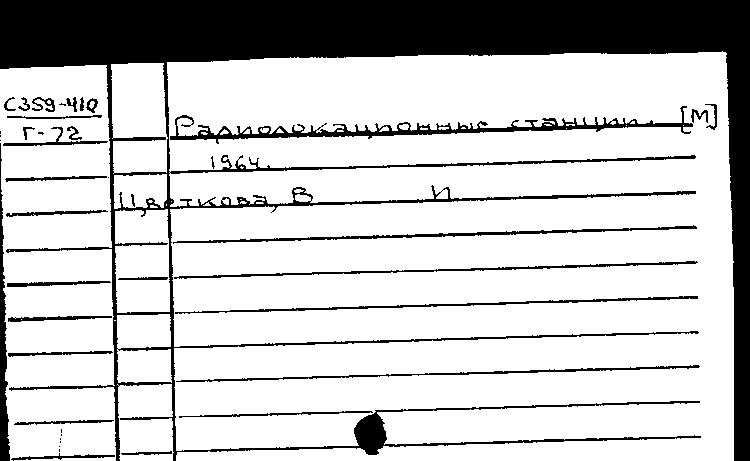 С359-410
Г-72
Радиолокационные станции. [М]
1964.
Цветкова, В И